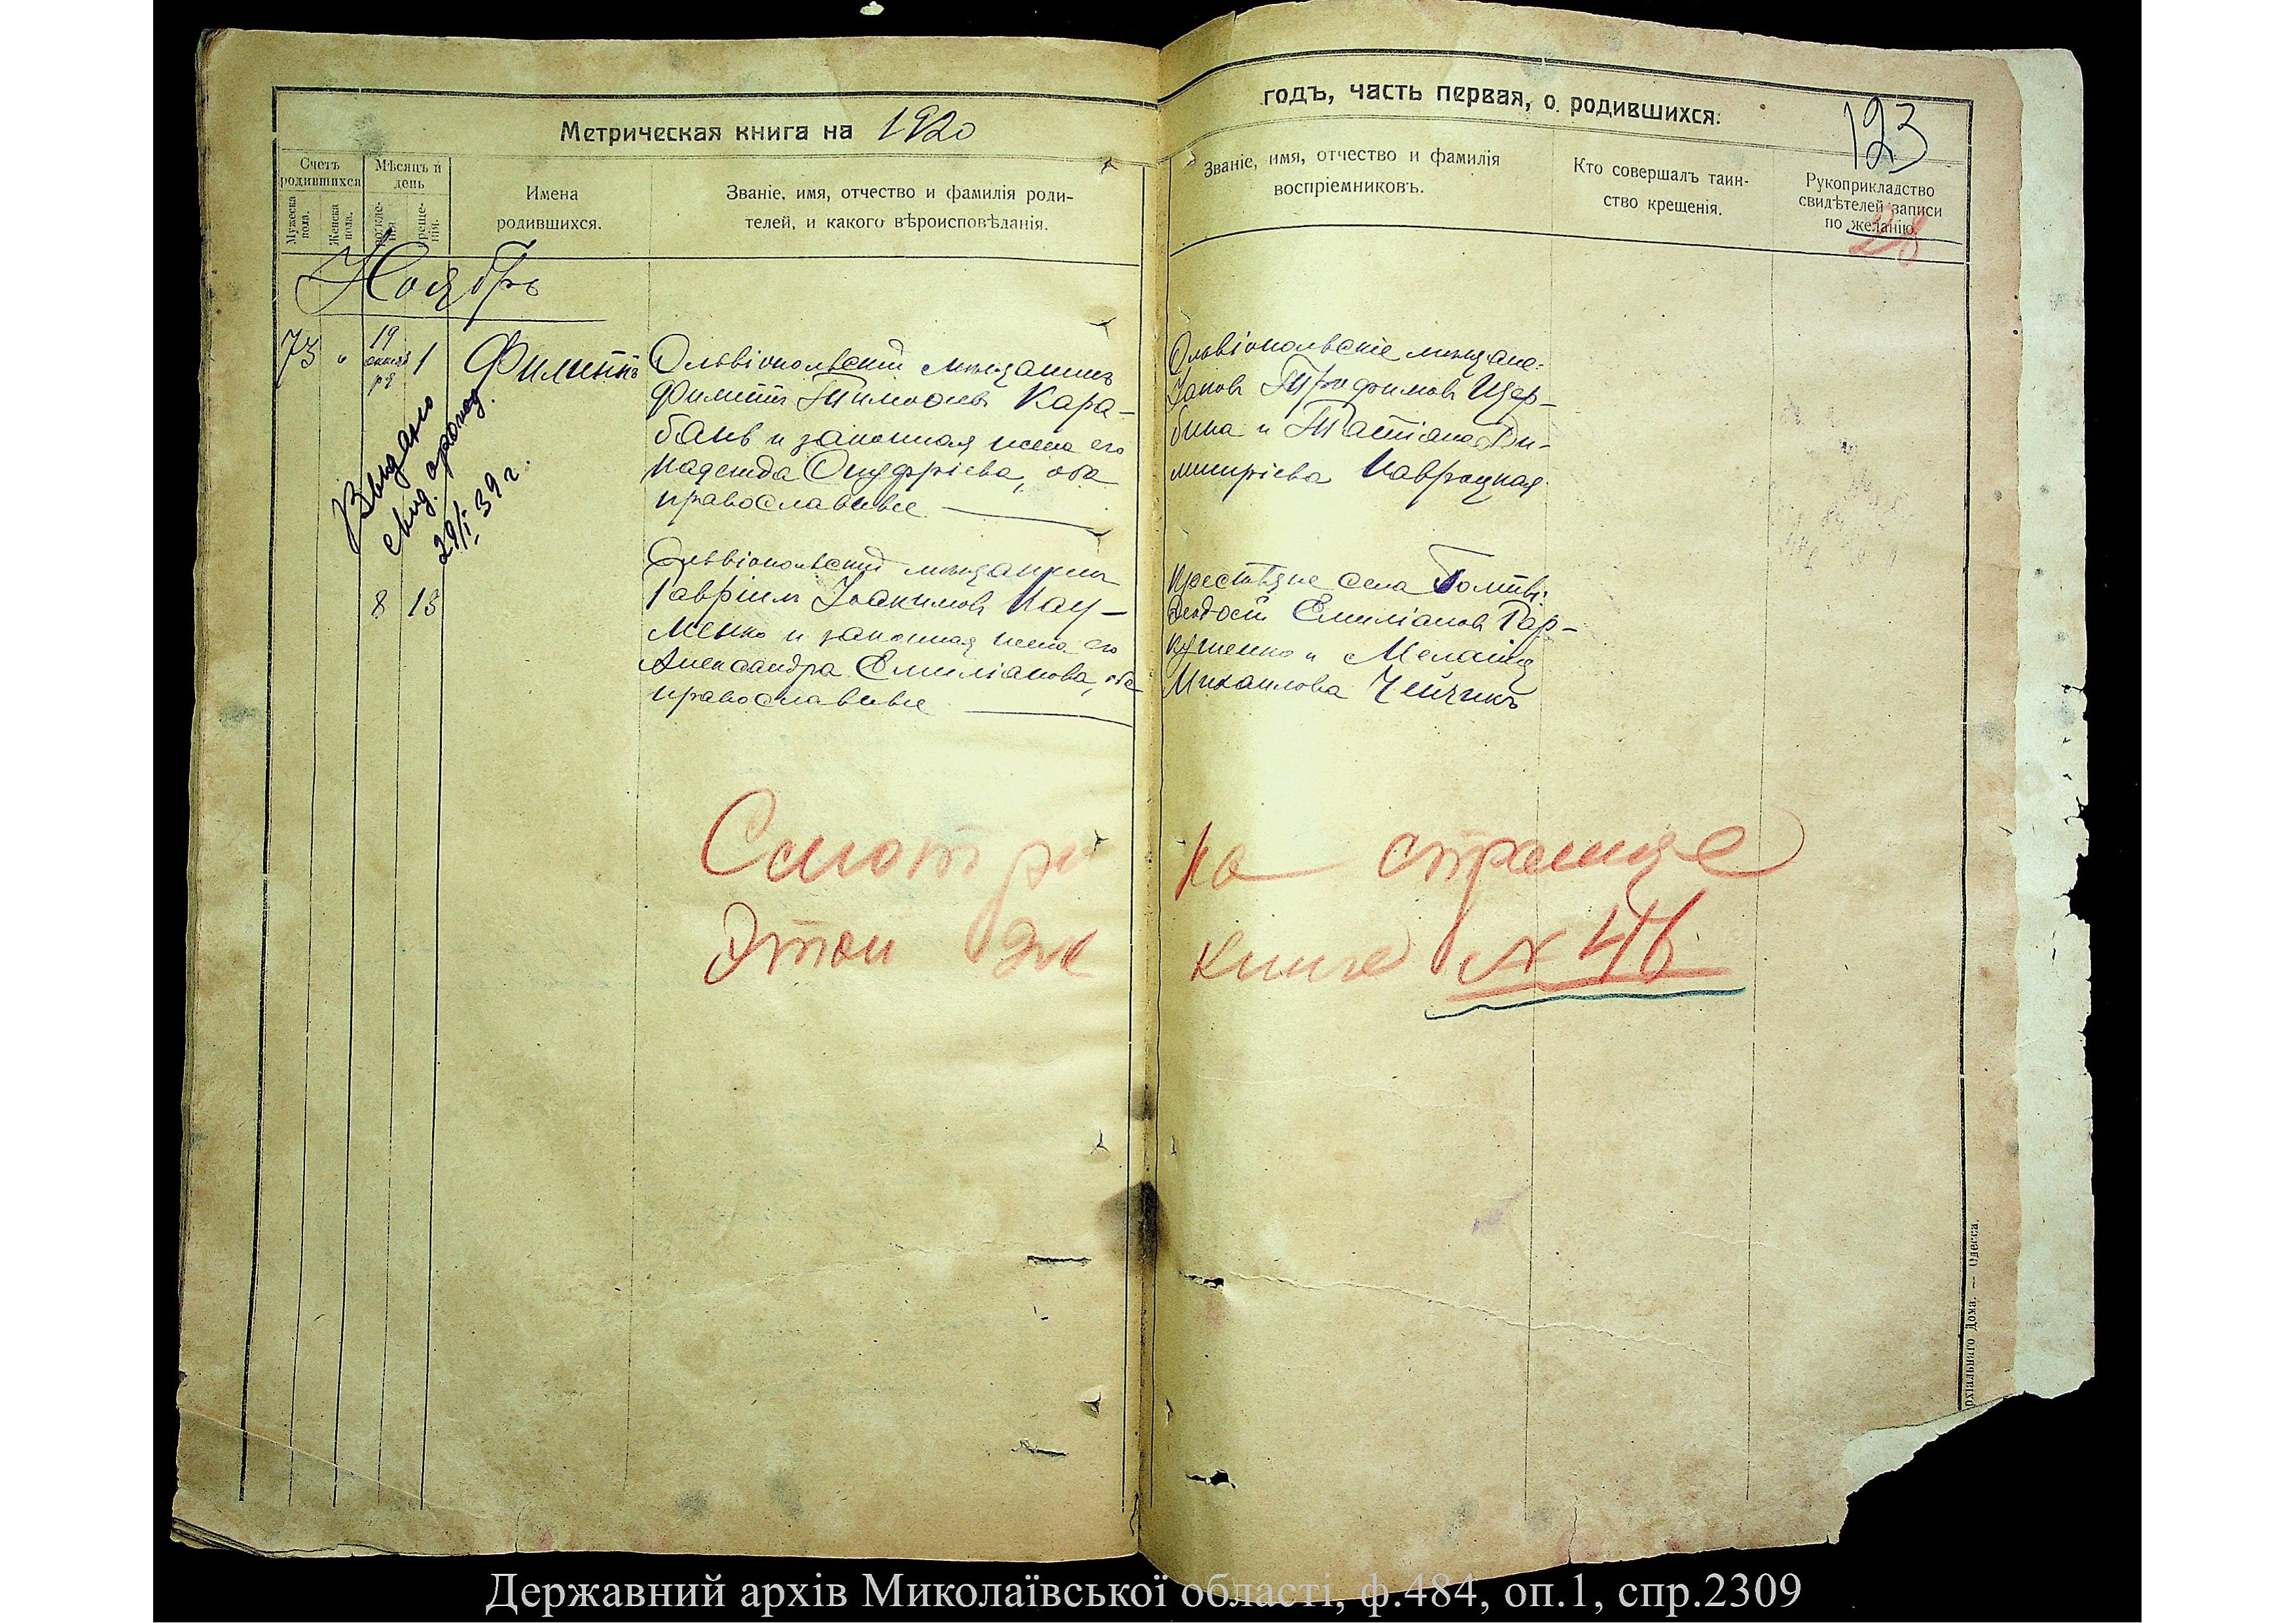 Метрическая книга на 1920
годъ, часть первая, о родившихся.
123
Счетъ родившихся
Мѣсяцъ и день
Мужеска пола.
Женска пола.
рожде-нія
креще-нія.
Имена родившихся.
Званіе, имя, отчество и фамилія роди-
телей, и какого вѣроисповѣданія.
Званіе, имя, отчество и фамилія
воспріемниковъ.
Кто совершалъ таин-
ство крещенія.
Рукоприкладство
свидѣтелей записи
по желанію.
28
Ноябрь
73 " 19 октября 1
Филиппъ
Ольвіопольскій мѣщанинъ
Филиппъ Тимоѳеевъ Кара-
банъ и законная жена его
Надежда Онуфріева, оба
православные
Ольвіопольскіе мѣщане:
Іаковъ Трофимовъ Щер-
бина и Татіана Ди-
митріева Навроцкая.
Выдано
свид. о рожд.
29/I 39 г.
8 13
Ольвіопольскій мѣщанинъ
Гавріилъ Іоакимовъ Нау-
менко и законная жена его
Александра Емиліанова, оба
православные
Крестьяне села
Ѳеодосій Емиліановъ Гар-
кушенко и Меланія
Михаилова
Смотри на странице
этой же книге № 46
рхіальнаго Дома. — Одесса.
Державний архів Миколаївської області, ф.484, оп.1, спр.2309